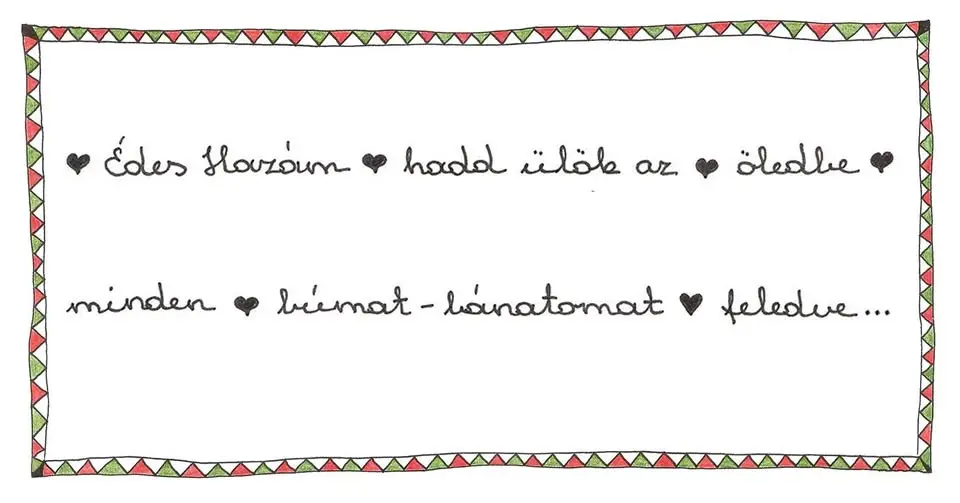 ♥ Édes Hazám ♥ hadd ülök az ♥ öledbe ♥
minden ♥ búmat - bánatomat ♥ feledve...